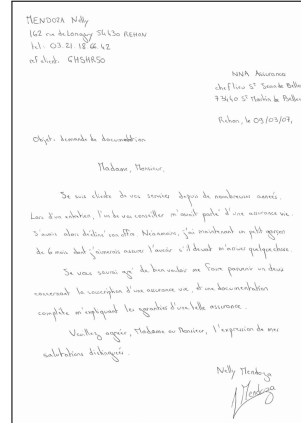 MENDOZA Nelly
162 rue de Longwy 54430 REHON
tel: 03.21.18.66.42
ref client: GHSHRS0
NNA Assurance
chef lieu St Jean de Belle
73440 St Martin de Belle
Rehon, le 09/03/07,
Objet: demande de documentation
Madame, Monsieur,
Je suis cliente de vos services depuis de nombreuses années.
Lors d'un entretien, l'un de vos conseiller m'avait parlé d'une assurance vie.
J'avais alors décliné son offre. Néanmoins, j'ai maintenant un petit garçon
de 6 mois dont j'aimerais assurer l'avenir s'il devait m'arriver quelque chose.
Je vous saurai gré de bien vouloir me faire parvenir un devis
concernant la souscription d'une assurance vie, et une documentation
complète m'expliquant les garanties d'une telle assurance.
Veuillez agréer, Madame ou Monsieur, l'expression de mes
salutations distinguées.
Nelly Mendoza
Mendoza